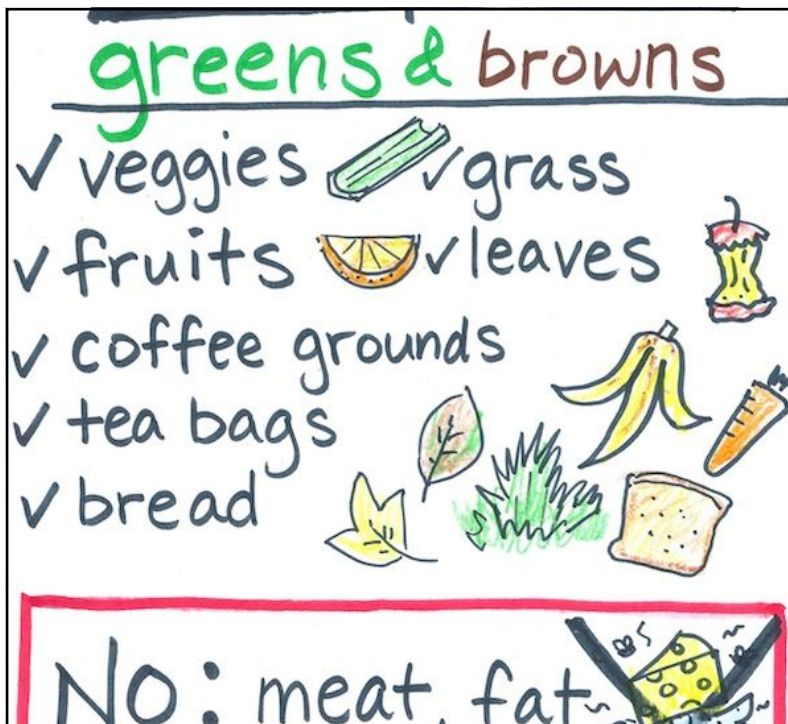 greens & browns
✓ veggies ✓ grass
✓ fruits ✓ leaves
✓ coffee grounds
✓ tea bags
✓ bread
NO: meat, fat